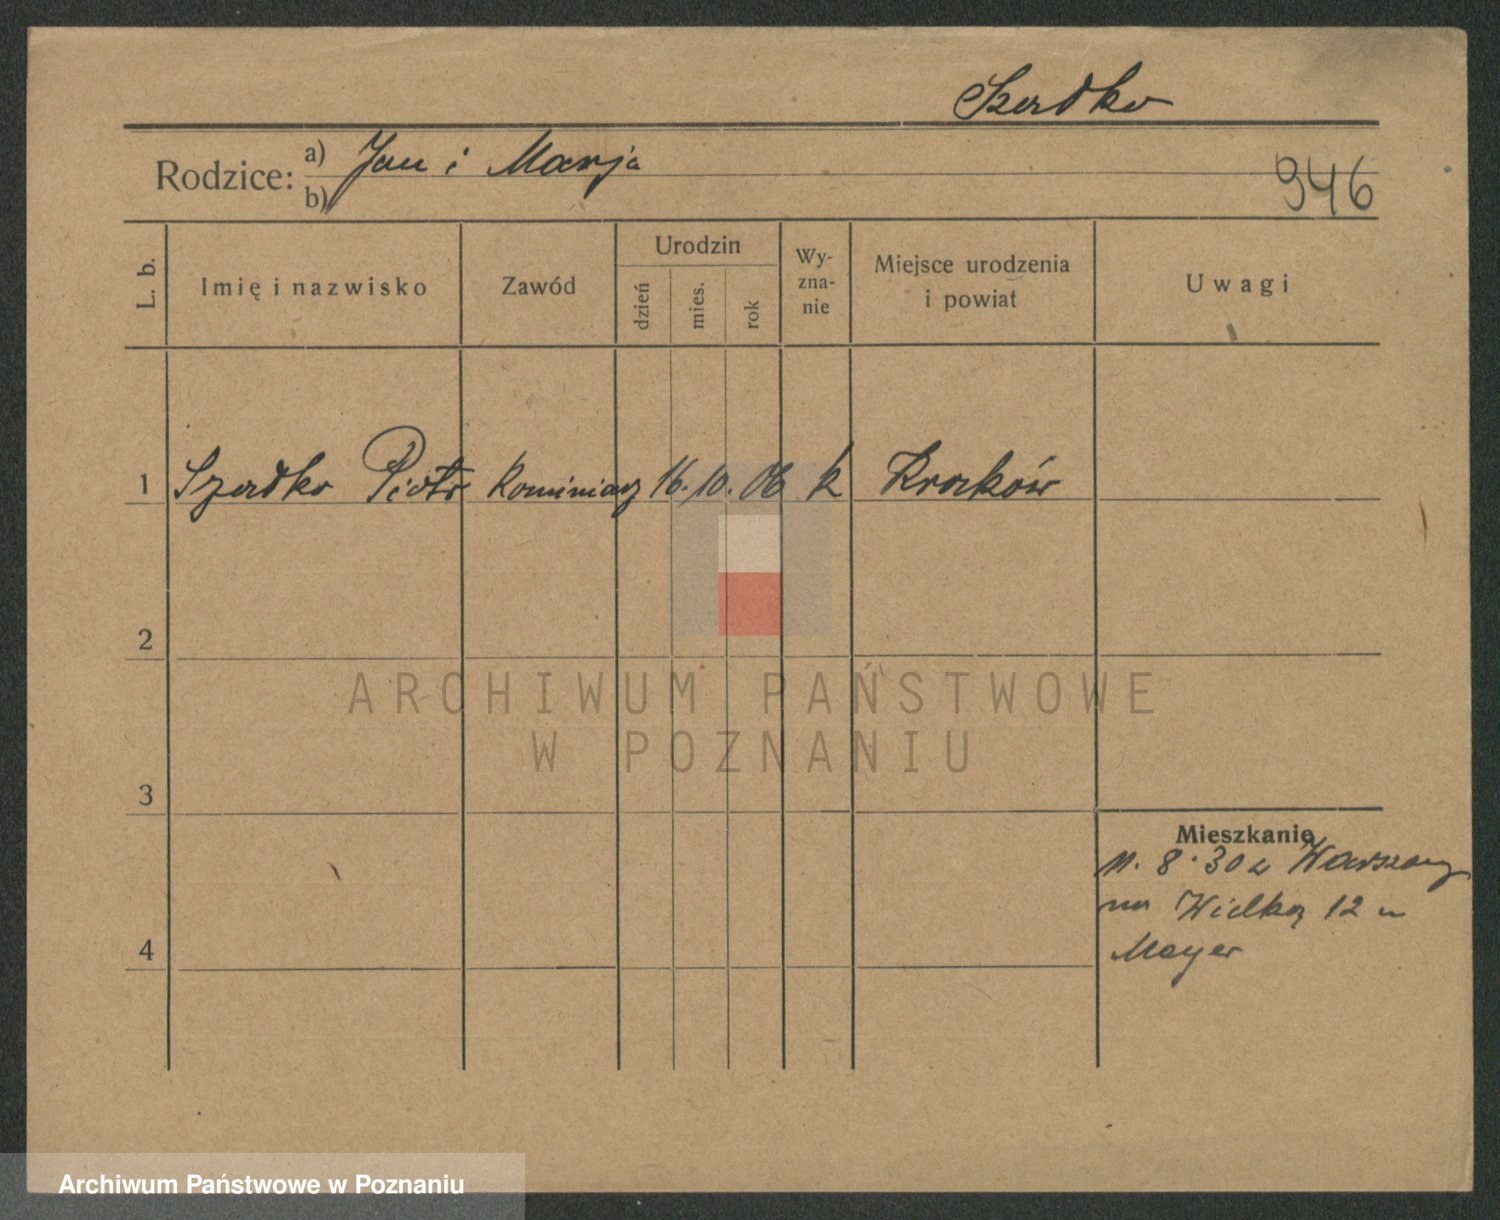 Szerdko
Rodzice: a) Jan i Marja
b)
946
L. b. Imię i nazwisko Zawód Urodzin dzień mies. rok Wy-zna-nie Miejsce urodzenia i powiat Uwagi
1 Szerdko Piotr kominiarz 16. 10. 06 k Kraków
2
ARCHIWUM PAŃSTWOWE
W POZNANIU
3
Mieszkanie
11. 8. 30 z Warszawy
na Wielką 12 u
Meyer
4
Archiwum Państwowe w Poznaniu